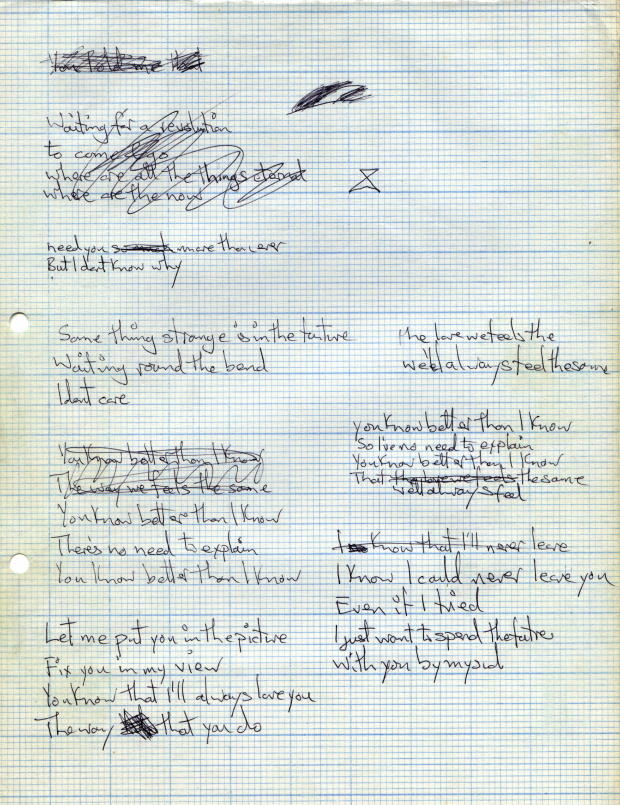 You told me that
Waiting for a revolution
to come & go
where are all the things eternal
where are the now
need you so much more than ever
But I dont know why
Some thing strange is in the furture
Waiting round the bend
I dont care
You know better than I know
The way we feels the same
You know better than I know
There's no need to explain
You know better than I know
Let me put you in the picture
Fix you in my view
You know that I'll always love you
The way that you do
The love we feels the
we'll always feel the same
you know better than I know
So Ive no need to explain
You know better than I know
That the love we feels the same
we'll always feel
I know that I'll never leave
I know I could never leave you
Even if I tried
I just want to spend the futre
with you by my sid